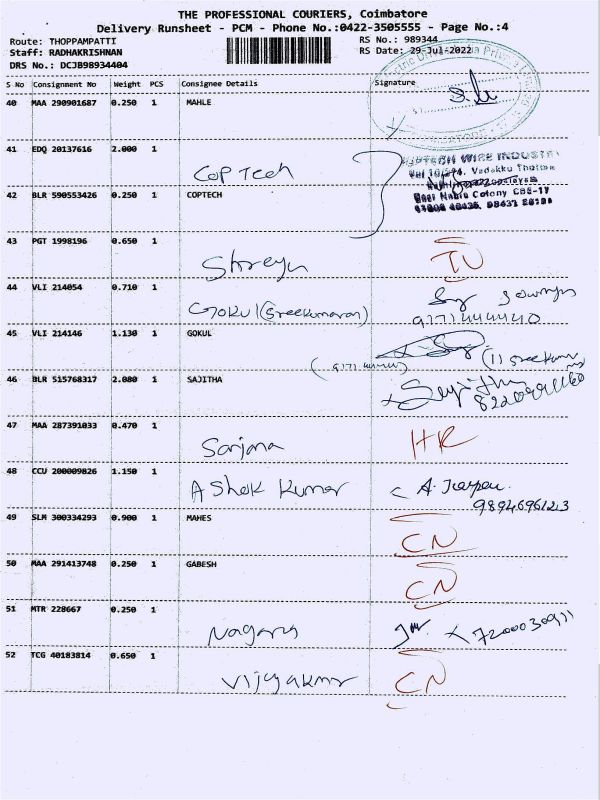 THE PROFESSIONAL COURIERS, Coimbatore
Delivery Runsheet - PCM - Phone No.:0422-3505555 - Page No.:4
Route: THOPPAMPATTI RS No.: 989344
Staff: RADHAKRISHNAN RS Date: 29-Jul-2022
DRS No.: DCJB98934404
S No Consignment No Weight PCS Consignee Details Signature
40 MAA 290901687 0.250 1 MAHLE
41 EDQ 20137616 2.000 1
COPTech
WIRE INDUSTRI
Vadakku Thottam
Colony CBE-17
42 BLR 590553426 0.250 1 COPTECH
43 PGT 1998196 0.650 1
Shreya
44 VLI 214054 0.710 1
GOKUL (Sreekumaran) 9171444440
45 VLI 214146 1.130 1 GOKUL
46 BLR 515768317 2.080 1 SAJITHA
47 MAA 287391033 0.470 1
Sanjana HR
48 CCU 200009826 1.150 1
Ashok Kumar
9894696123
49 SLM 300334293 0.900 1 MAHES
CN
50 MAA 291413748 0.250 1 GABESH
CN
51 MTR 228667 0.250 1
Nagaraj 7200030911
52 TCG 40183814 0.650 1
Vijayakumar CN